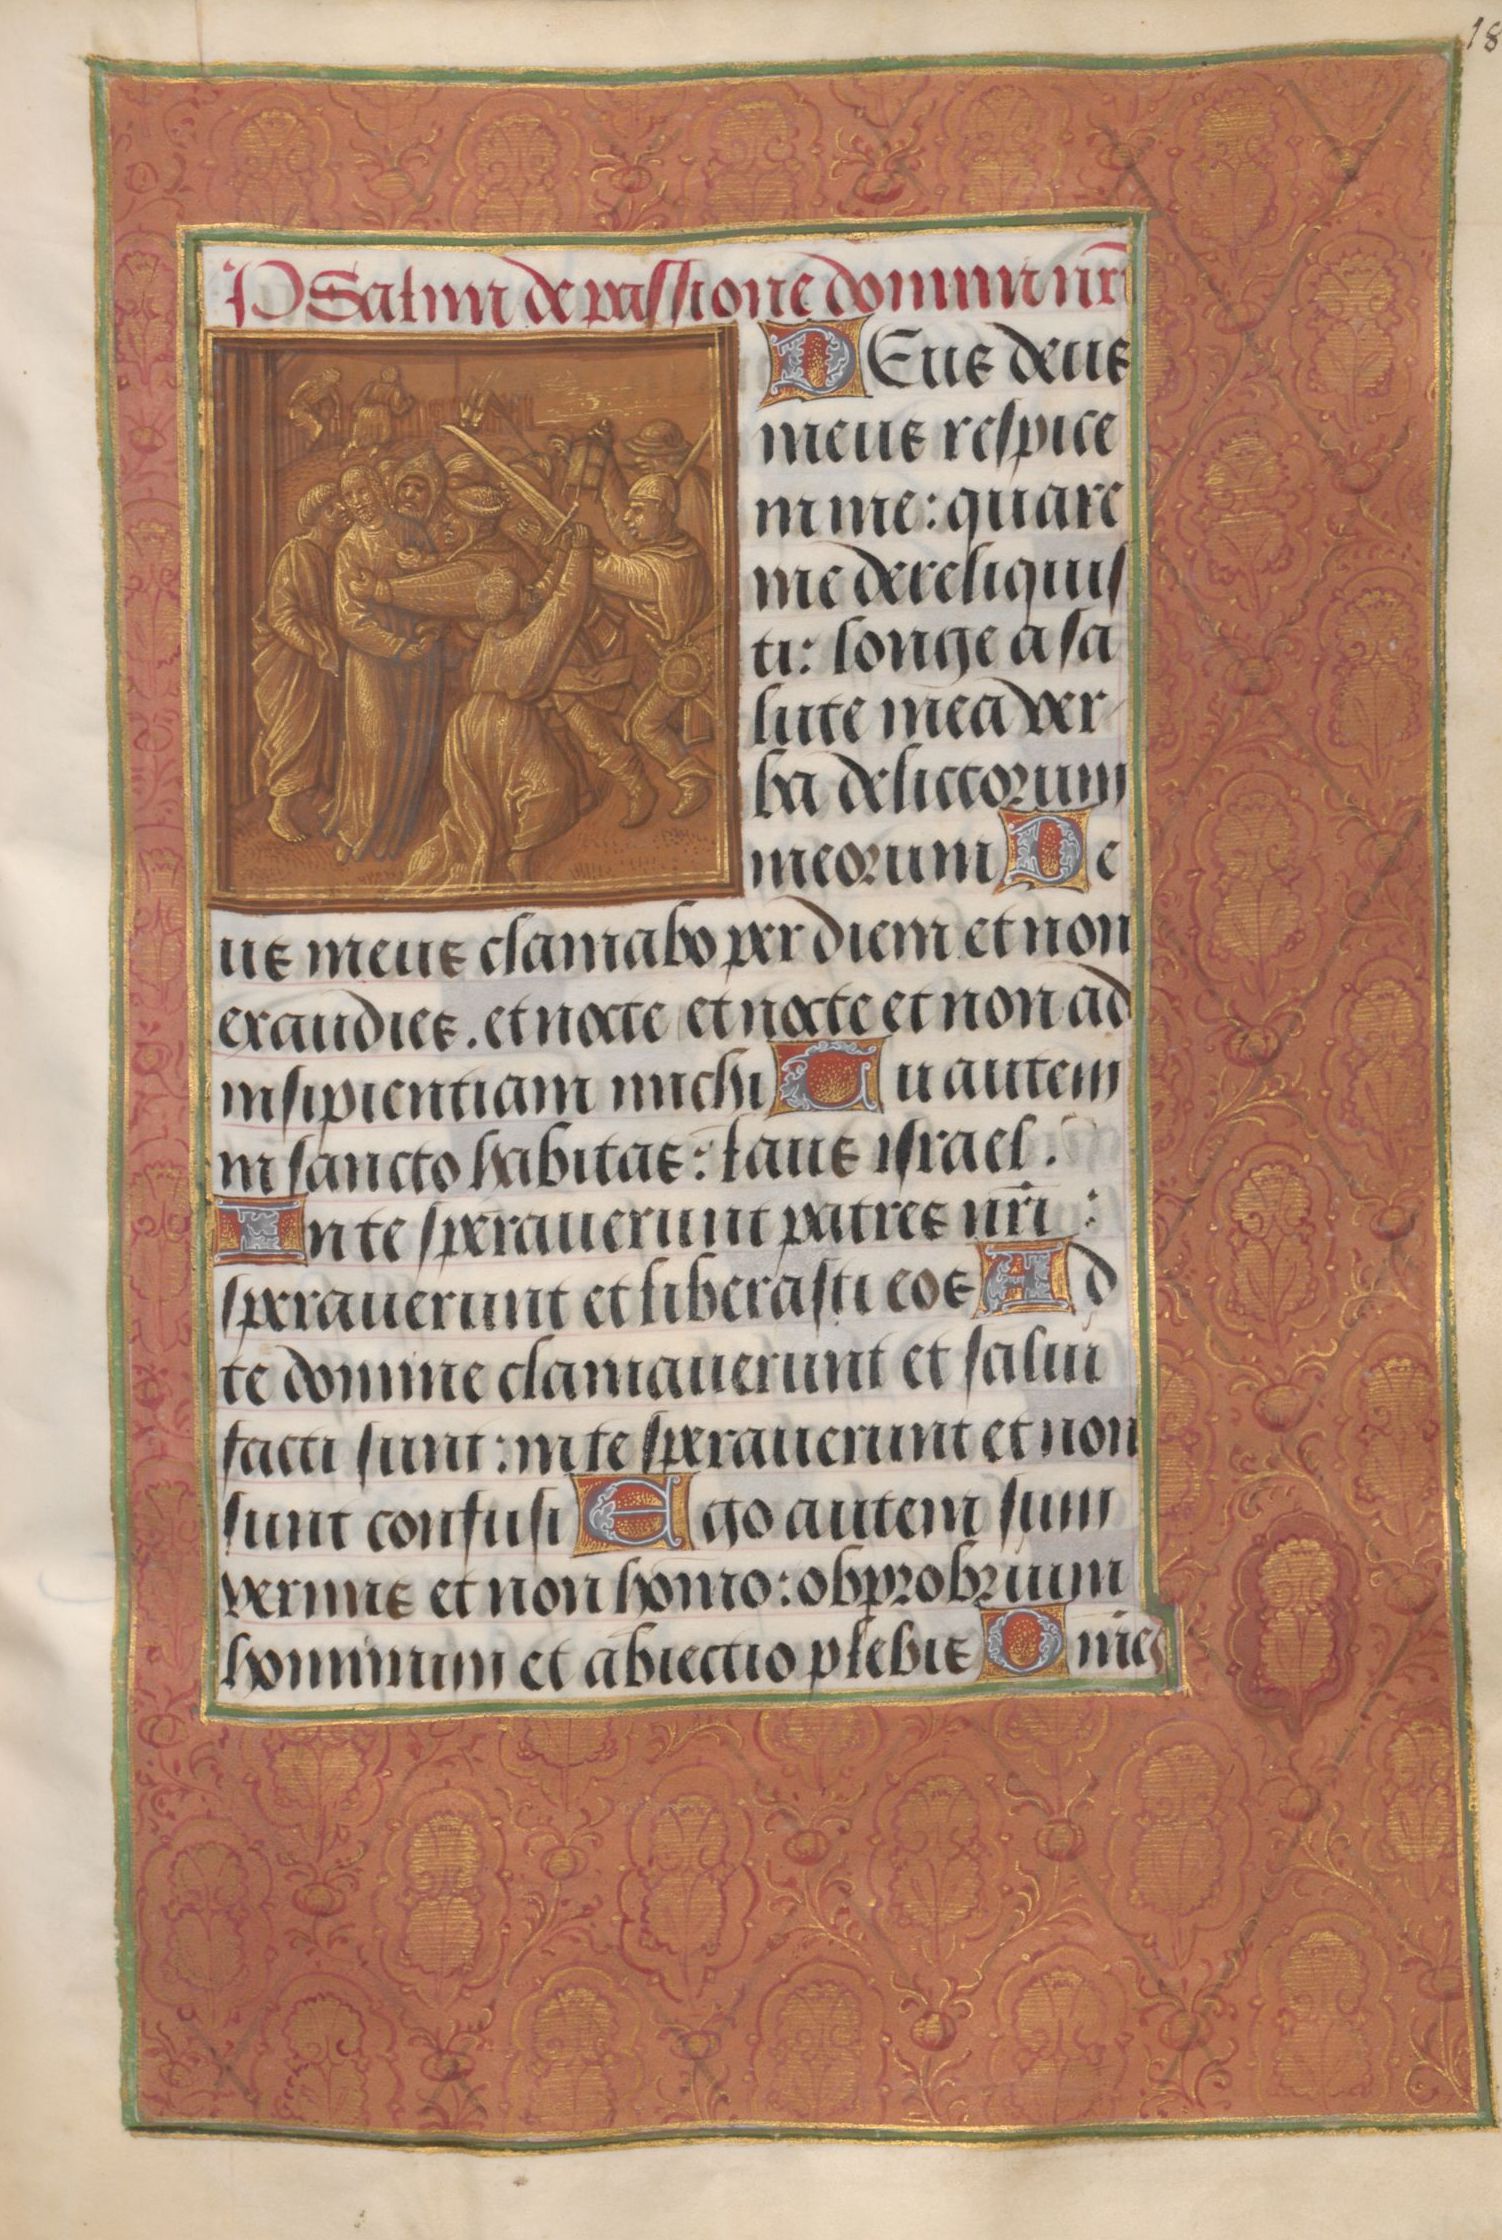 18
PSalmi de passione domini nr̄i
DEus deus
meus respice
in me: quare
me dereliquis
ti: longe a sa
lute mea ver-
ba delictorum
meorum De
us meus clamabo per diem et non
exaudies. et nocte et nocte et non ad
insipientiam michi Tu autem
in sancto habitas: laus israel.
In te sperauerunt patres nr̄i:
sperauerunt et liberasti eos Ad
te domine clamauerunt et salui
facti sunt: in te sperauerunt et non
sunt confusi Ego autem sum
vermis et non homo: obprobrium
hominum et abiectio plebis Om̄es